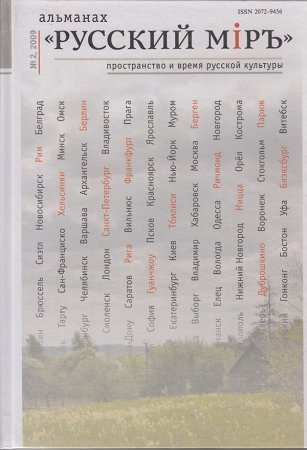 альманах
ISSN 2072-9456
№ 2, 2009
«РУССКИЙ МIРЪ»
пространство и время русской культуры
Брюссель Сиэтл Новосибирск Рим Белград
Тарту Сан-Франциско Хельсинки Минск Омск
Челябинск Варшава Архангельск Берлин
Смоленск Лондон Санкт-Петербург Владивосток
Дону Саратов Рига Вильнюс Франкфурт Прага
София Гуанчжоу Псков Красноярск Ярославль
Екатеринбург Киев Тбилиси Нью-Йорк Муром
Выборг Владимир Хабаровск Москва Берген
Елец Вологда Одесса Ричмонд Новгород
Нижний Новгород Ницца Орёл Кострома
Тверь Дуброшкино Воронеж Стокгольм Париж
Гонконг Бостон Уфа Блэксбург Витебск